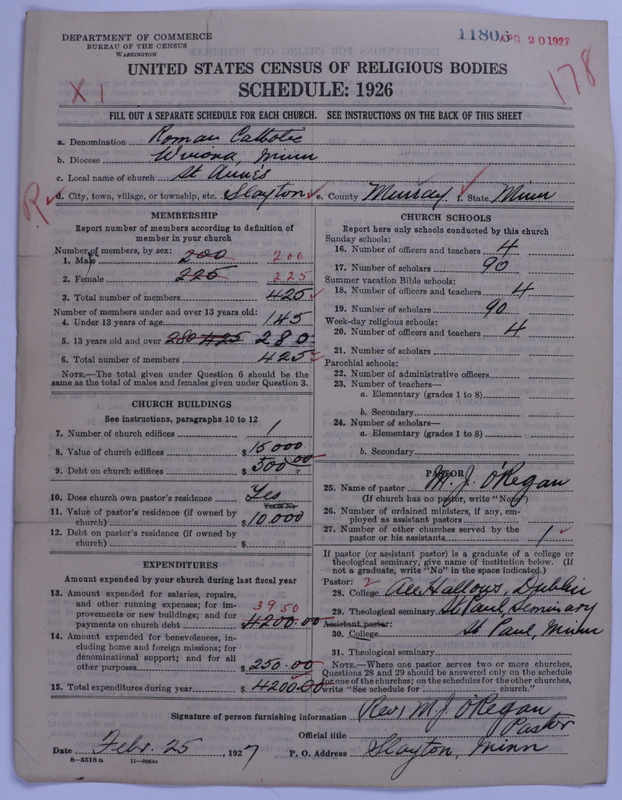 DEPARTMENT OF COMMERCE
BUREAU OF THE CENSUS
WASHINGTON
11803 APR 20 1927
UNITED STATES CENSUS OF RELIGIOUS BODIES
SCHEDULE: 1926
X 1
178
FILL OUT A SEPARATE SCHEDULE FOR EACH CHURCH. SEE INSTRUCTIONS ON THE BACK OF THIS SHEET
a. Denomination Roman Catholic
b. Diocese Winona, Minn
c. Local name of church St Annes
R
d. City, town, village, or township, etc. Slayton e. County Murray f. State Minn
MEMBERSHIP
Report number of members according to definition of
member in your church
Number of members, by sex:
1. Male 200 200
2. Female 225 225
3. Total number of members 425
Number of members under and over 13 years old:
4. Under 13 years of age 145
5. 13 years old and over 280 425 280
6. Total number of members 425
NOTE.—The total given under Question 6 should be
same as the total of males and females given under Question 3.
CHURCH BUILDINGS
See instructions, paragraphs 10 to 12
7. Number of church edifices 1
8. Value of church edifices $ 15000
9. Debt on church edifices $ 500.00
10. Does church own pastor's residence Yes
Yes or No
11. Value of pastor's residence (if owned by
church) $ 10.000
12. Debt on pastor's residence (if owned by
church) $
EXPENDITURES
Amount expended by your church during last fiscal year
13. Amount expended for salaries, repairs,
and other running expenses; for im-
provements or new buildings; and for
payments on church debt 3950 $ 4200.00
14. Amount expended for benevolences, in-
cluding home and foreign missions; for
denominational support; and for all
other purposes $ 250.00
15. Total expenditures during year $ 4200.00
CHURCH SCHOOLS
Report here only schools conducted by this church
Sunday schools:
16. Number of officers and teachers 4
17. Number of scholars 90
Summer vacation Bible schools:
18. Number of officers and teachers 4
19. Number of scholars 90
Week-day religious schools:
20. Number of officers and teachers 4
21. Number of scholars
Parochial schools:
22. Number of administrative officers
23. Number of teachers—
a. Elementary (grades 1 to 8)
b. Secondary
24. Number of scholars—
a. Elementary (grades 1 to 8)
b. Secondary
PASTOR
25. Name of pastor M. J. O'Regan
(If church has no pastor, write "None")
26. Number of ordained ministers, if any, em-
ployed as assistant pastors
27. Number of other churches served by the
pastor or his assistants 1
If pastor (or assistant pastor) is a graduate of a college or
theological seminary, give name of institution below. (If
not a graduate, write "No" in the space indicated.)
Pastor: 2
28. College All Hallows, Dublin
29. Theological seminary St Paul, Seminary
Assistant pastor:
30. College St Paul, Minn
31. Theological seminary
NOTE.—Where one pastor serves two or more churches,
Questions 28 and 29 should be answered only on the schedule
for one of the churches; on the schedules for the other churches,
write "See schedule for church."
Signature of person furnishing information Rev M J O'Regan
Official title Pastor
Date Febr. 25, 1927 P. O. Address Slayton, Minn
8—5518 a